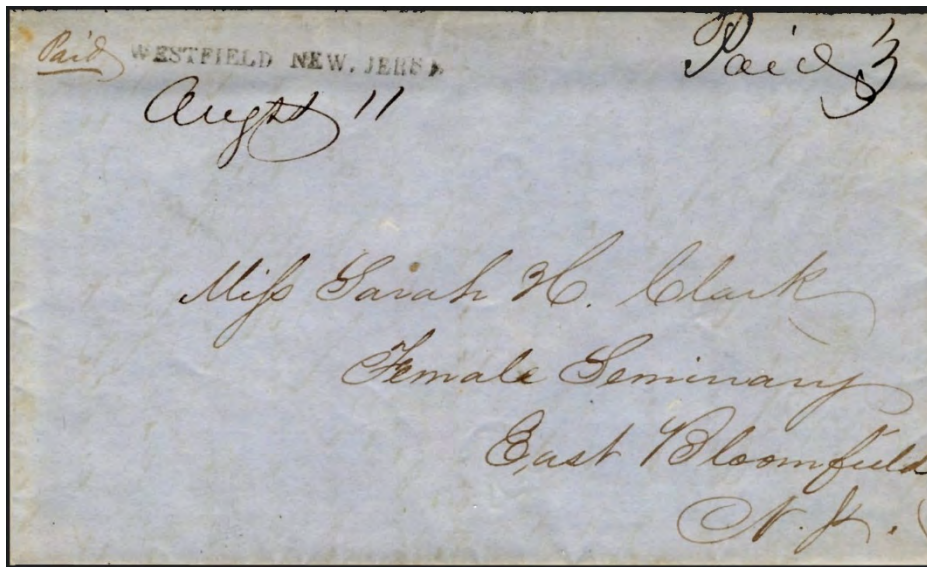 Paid WESTFIELD NEW. JERSEY Paid 3
Augst 11
Miſs Sarah H. Clark
Female Seminary
East Bloomfield
N. Y.